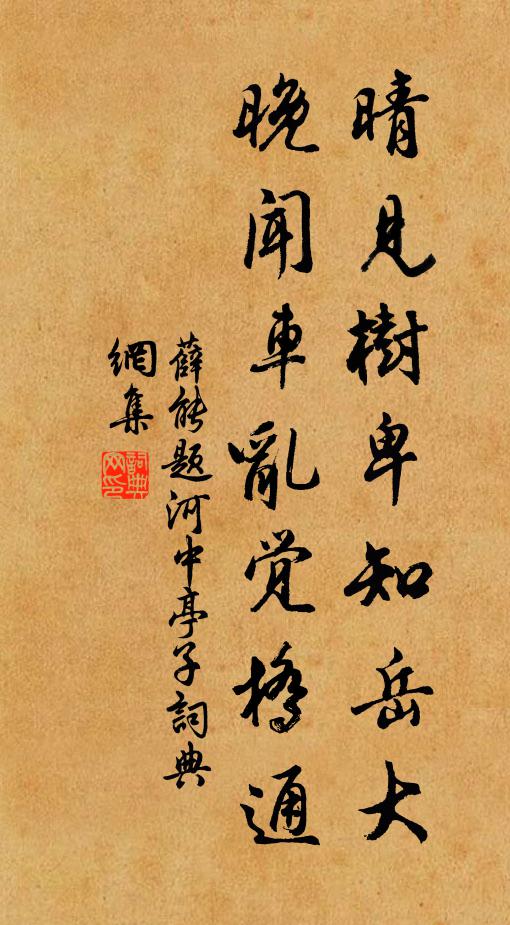 晴見樹卑知岳大
晚聞車亂覺橋通
薛能題河中亭子詞典
網集
詞典
网印